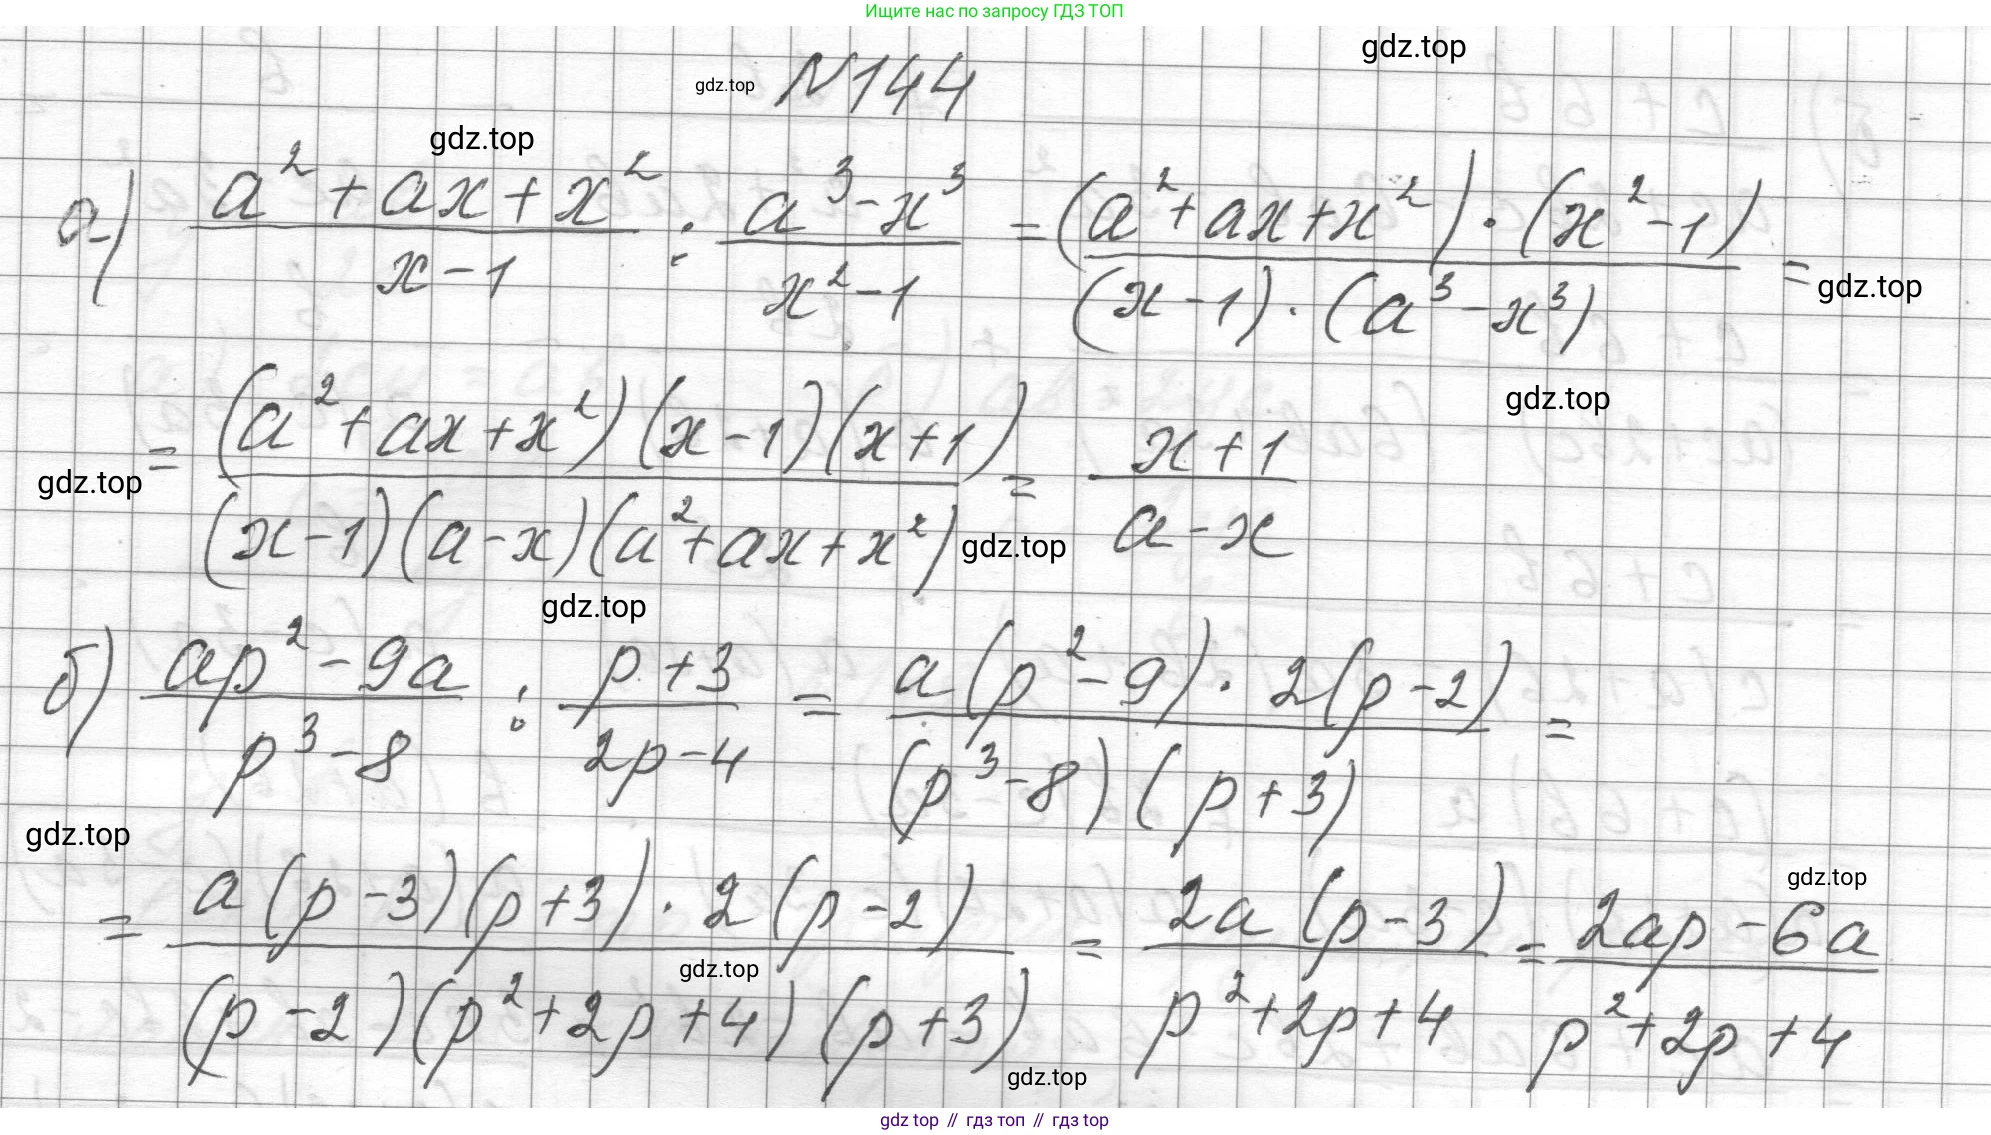 Ищите нас по запросу ГДЗ ТОП
gdz.top
gdz.top N144
gdz.top
а) (a² + ax + x²)/(x - 1) : (a³ - x³)/(x² - 1) = ((a² + ax + x²) · (x² - 1))/((x - 1) · (a³ - x³)) =
gdz.top
gdz.top
= ((a² + ax + x²)(x - 1)(x + 1))/((x - 1)(a - x)(a² + ax + x²)) = (x + 1)/(a - x)
gdz.top
gdz.top
gdz.top
б) (ap² - 9a)/(p³ - 8) : (p + 3)/(2p - 4) = (a(p² - 9) · 2(p - 2))/((p³ - 8)(p + 3)) =
gdz.top
gdz.top
= (a(p - 3)(p + 3) · 2(p - 2))/((p - 2)(p² + 2p + 4)(p + 3)) = (2a(p - 3))/(p² + 2p + 4) = (2ap - 6a)/(p² + 2p + 4)
gdz.top
gdz.top
gdz top // гдз топ // gdz top